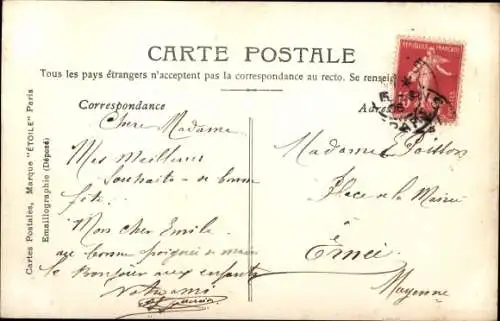 CARTE POSTALE
Tous les pays étrangers n'acceptent pas la correspondance au recto. Se renseig
Correspondance
Chère Madame
Mes Meilleurs
Souhaits de bonne
fête.
Mon cher Emile
une bonne poignée de main
le Bonjour aux enfants
Votre ami
Adres
Madame Poisson
Place de la Mairie
à
Ernée
Mayenne
RÉPUBLIQUE FRANÇAISE
Cartes Postales, Marque "ÉTOILE" Paris
Emaillographie (Déposé)